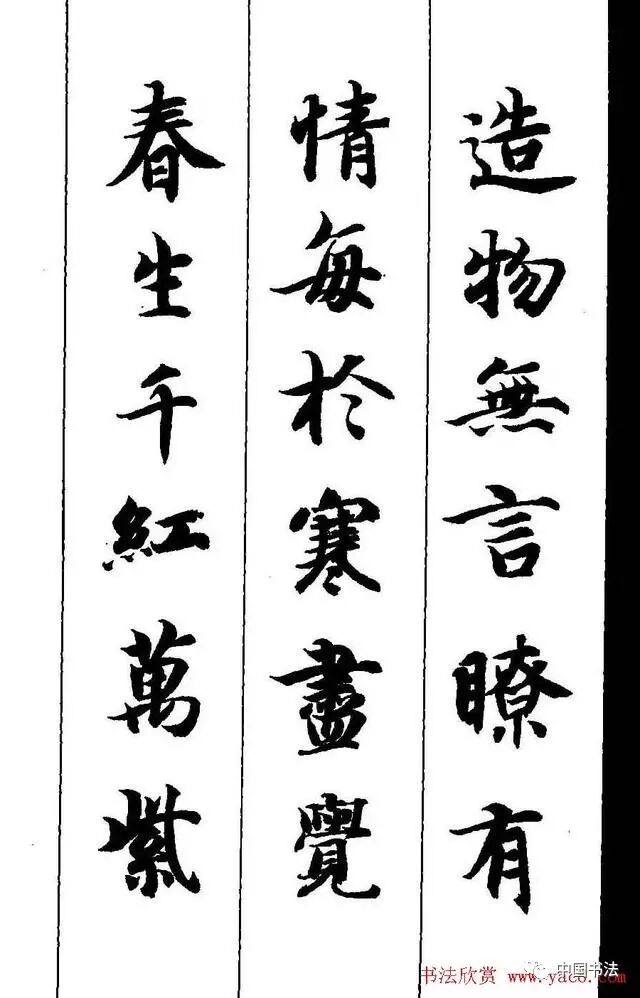 造物無言瞭有
情每於寒盡覺
春生千紅萬紫
中国书法
书法欣赏 www.yac8.com